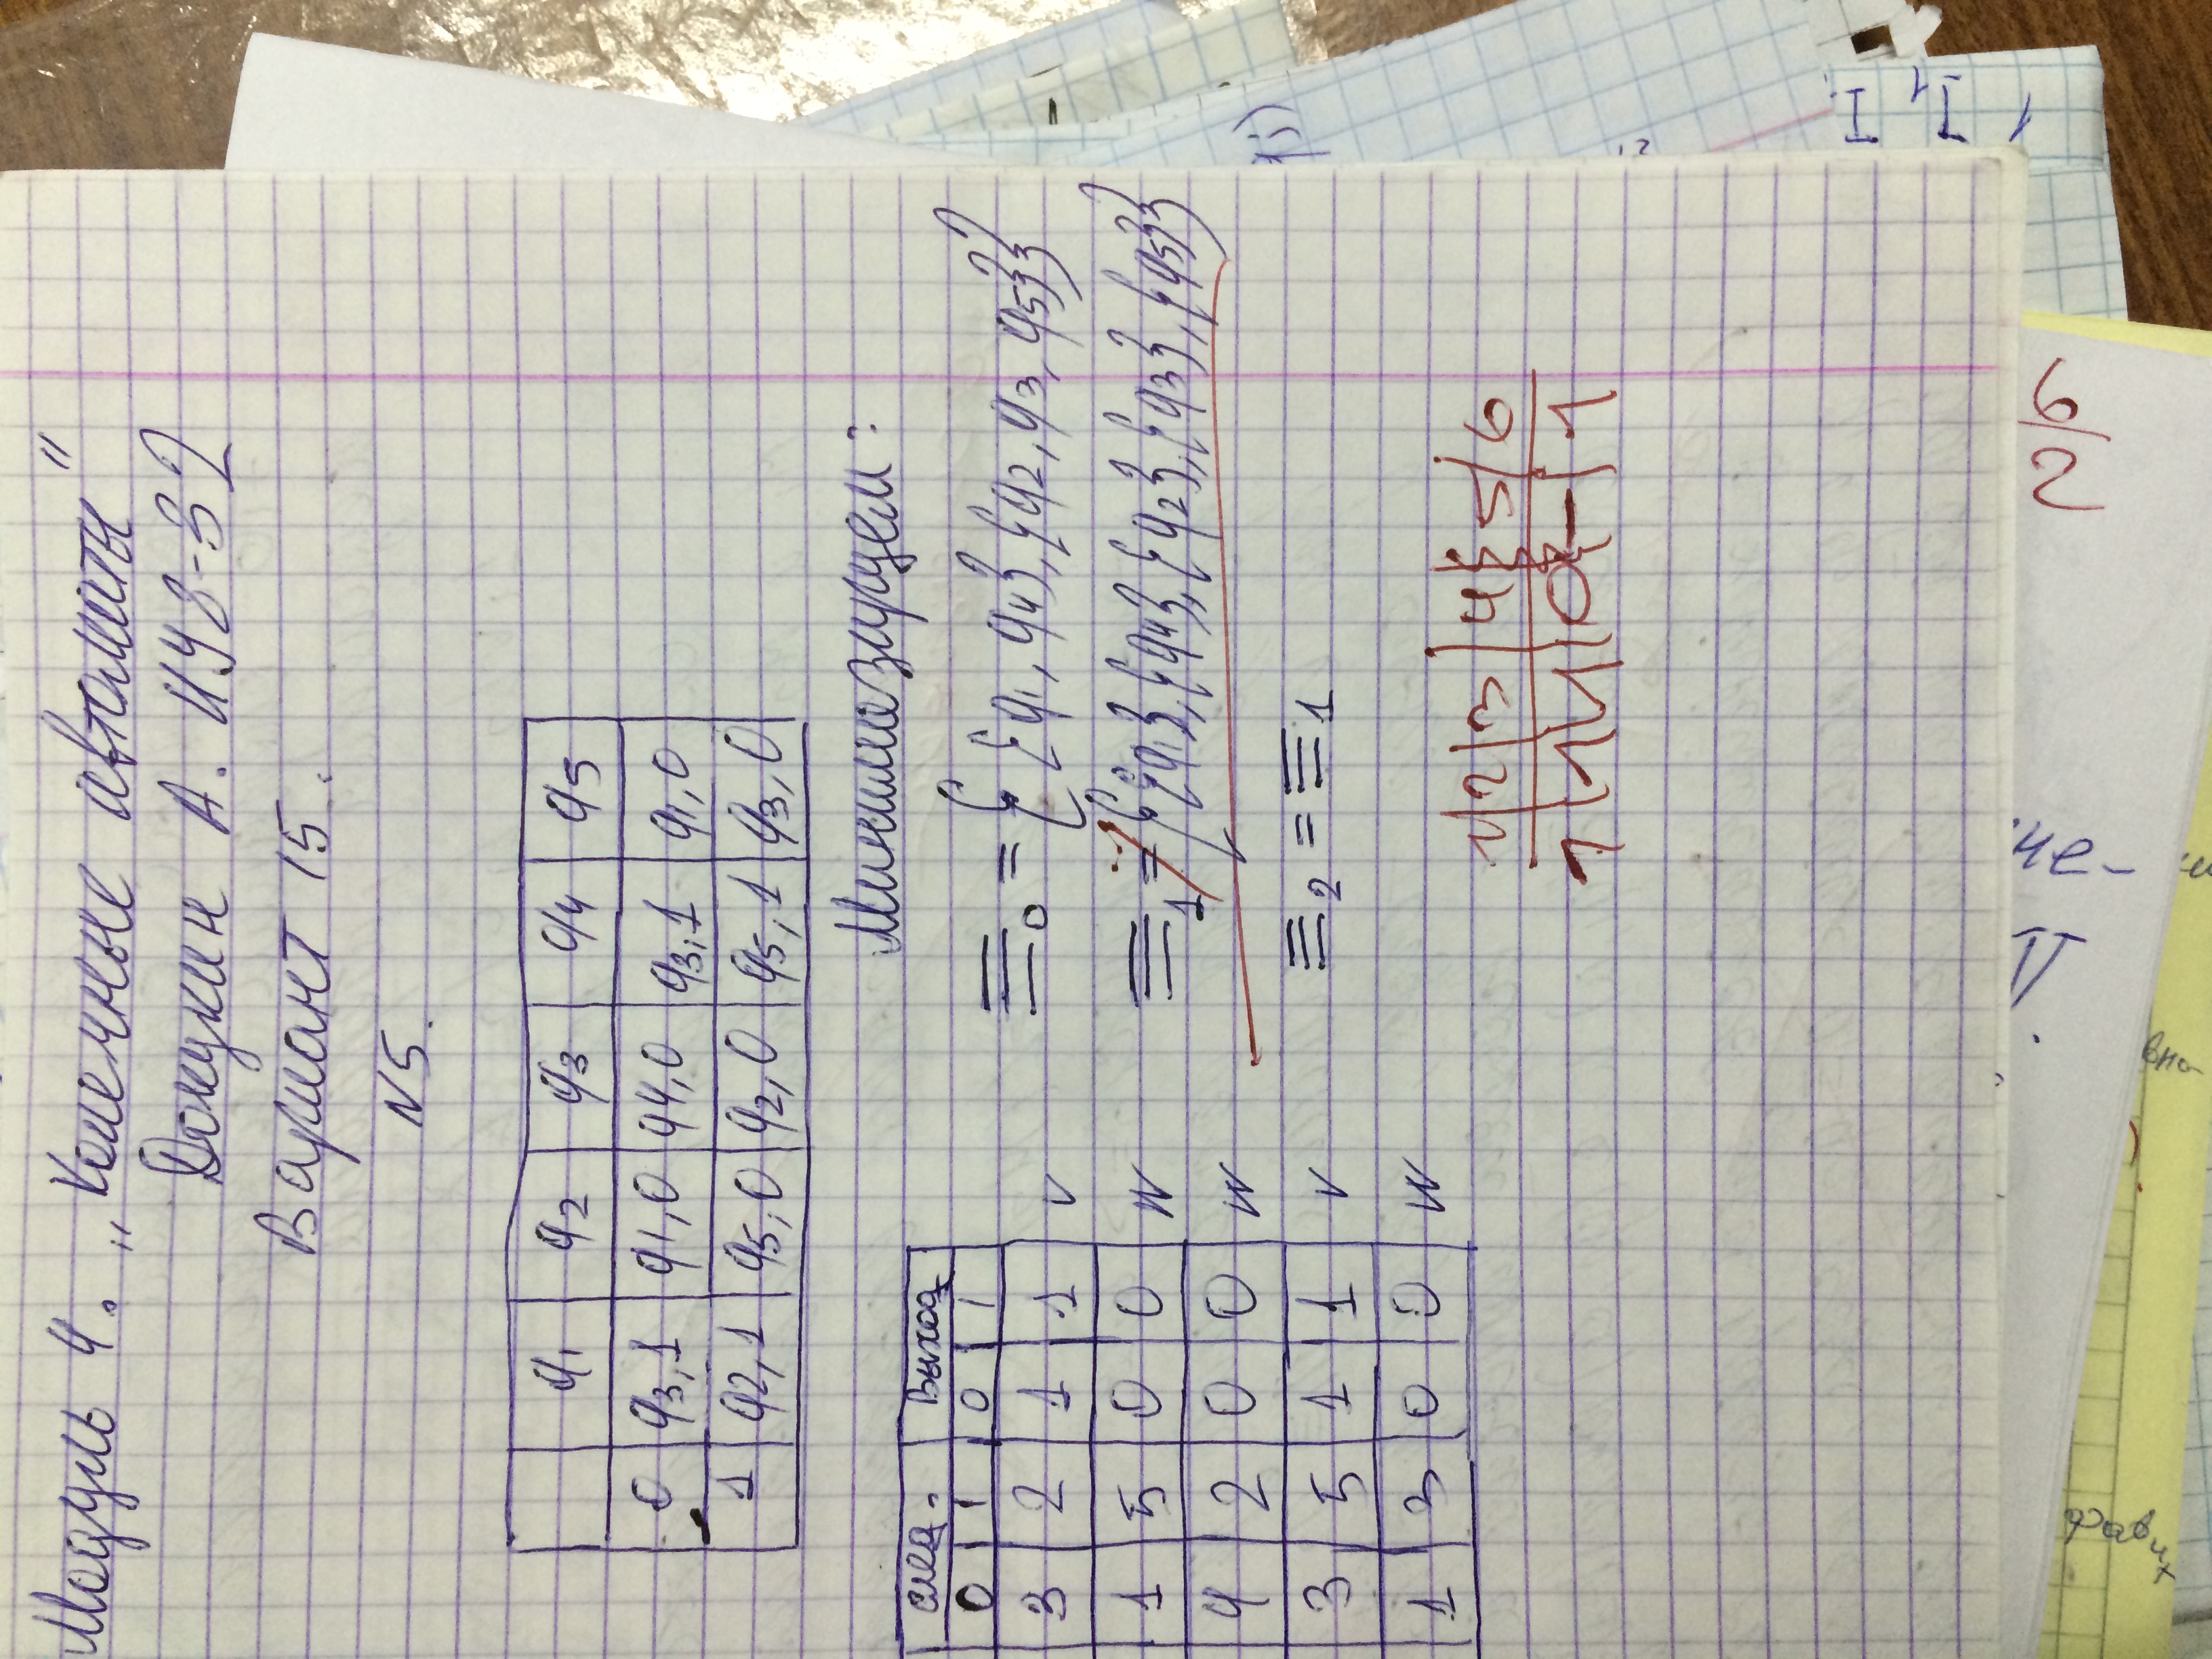 Модуль 4. „Конечные автоматы"
Докукин А. ИУ8-32
Вариант 15.
N5.
q1 q2 q3 q4 q5
0 q3,1 q1,0 q4,0 q3,1 q1,0
1 q2,1 q5,0 q2,0 q5,1 q3,0
Минимизируем:
след. Выход
0 1 0 1
3 2 1 1 v
1 5 0 0 w
4 2 0 0 w
3 5 1 1 v
1 3 0 0 w
≡0 = {{q1, q4}, {q2, q3, q5}}
≡1 = {{q1}, {q4}, {q2}, {q3}, {q5}}
≡2 = ≡1
1 2 3 4 5 6
1 1 1 0 – 1